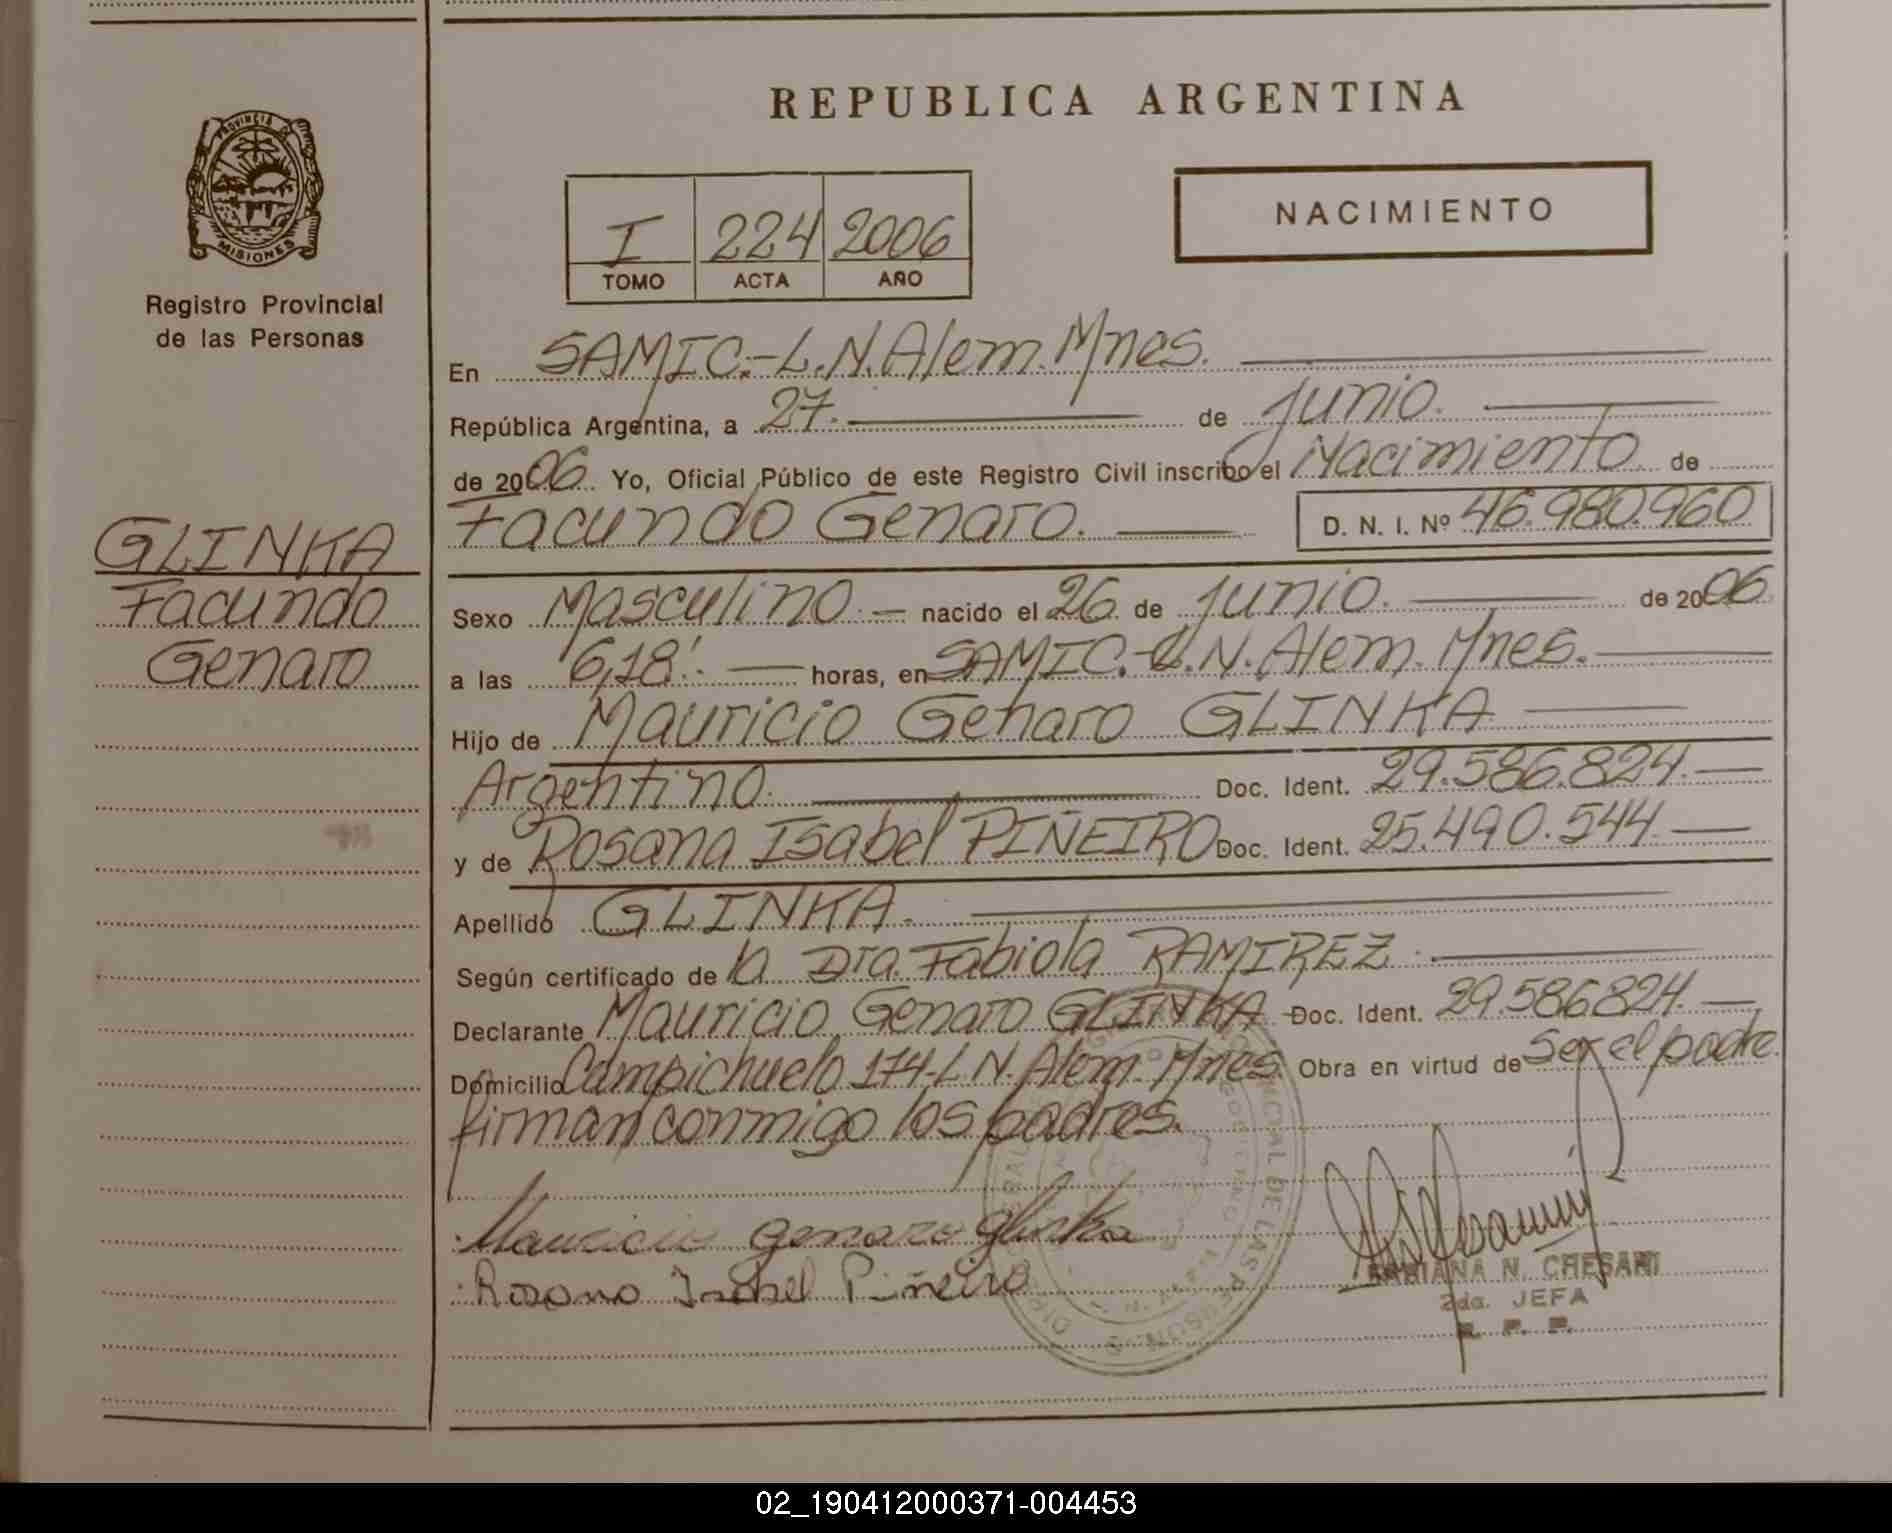 REPUBLICA ARGENTINA
PROVINCIA DE
MISIONES
Registro Provincial
de las Personas
I 224 2006
TOMO ACTA AÑO
NACIMIENTO
GLINKA
Facundo
Genaro
En SAMIC.-L.N.Alem.Mnes.
República Argentina, a 27. de junio.
de 2006. Yo, Oficial Público de este Registro Civil inscribo el Nacimiento de
Facundo Genaro. D. N. I. Nº 46.980.960
Sexo Masculino.- nacido el 26 de junio. de 2006
a las 6,18'. horas, en SAMIC.-L.N.Alem.Mnes.
Hijo de Mauricio Genaro GLINKA
Argentino. Doc. Ident. 29.586.824.
y de Rosana Isabel PIÑEIRO Doc. Ident. 25.490.544
Apellido GLINKA.
Según certificado de la Dra. Fabiola RAMIREZ.
Declarante Mauricio Genaro GLINKA Doc. Ident. 29.586824.
Domicilio Campichuelo 174-L N. Alem. Mnes Obra en virtud de Ser el padre.
firman conmigo los padres.
Mauricio genaro glinka
Rosana Isabel Piñeiro
N. CHESANI
2da. JEFA
R. P. P.
DE LAS PERSONAS
02_190412000371-004453